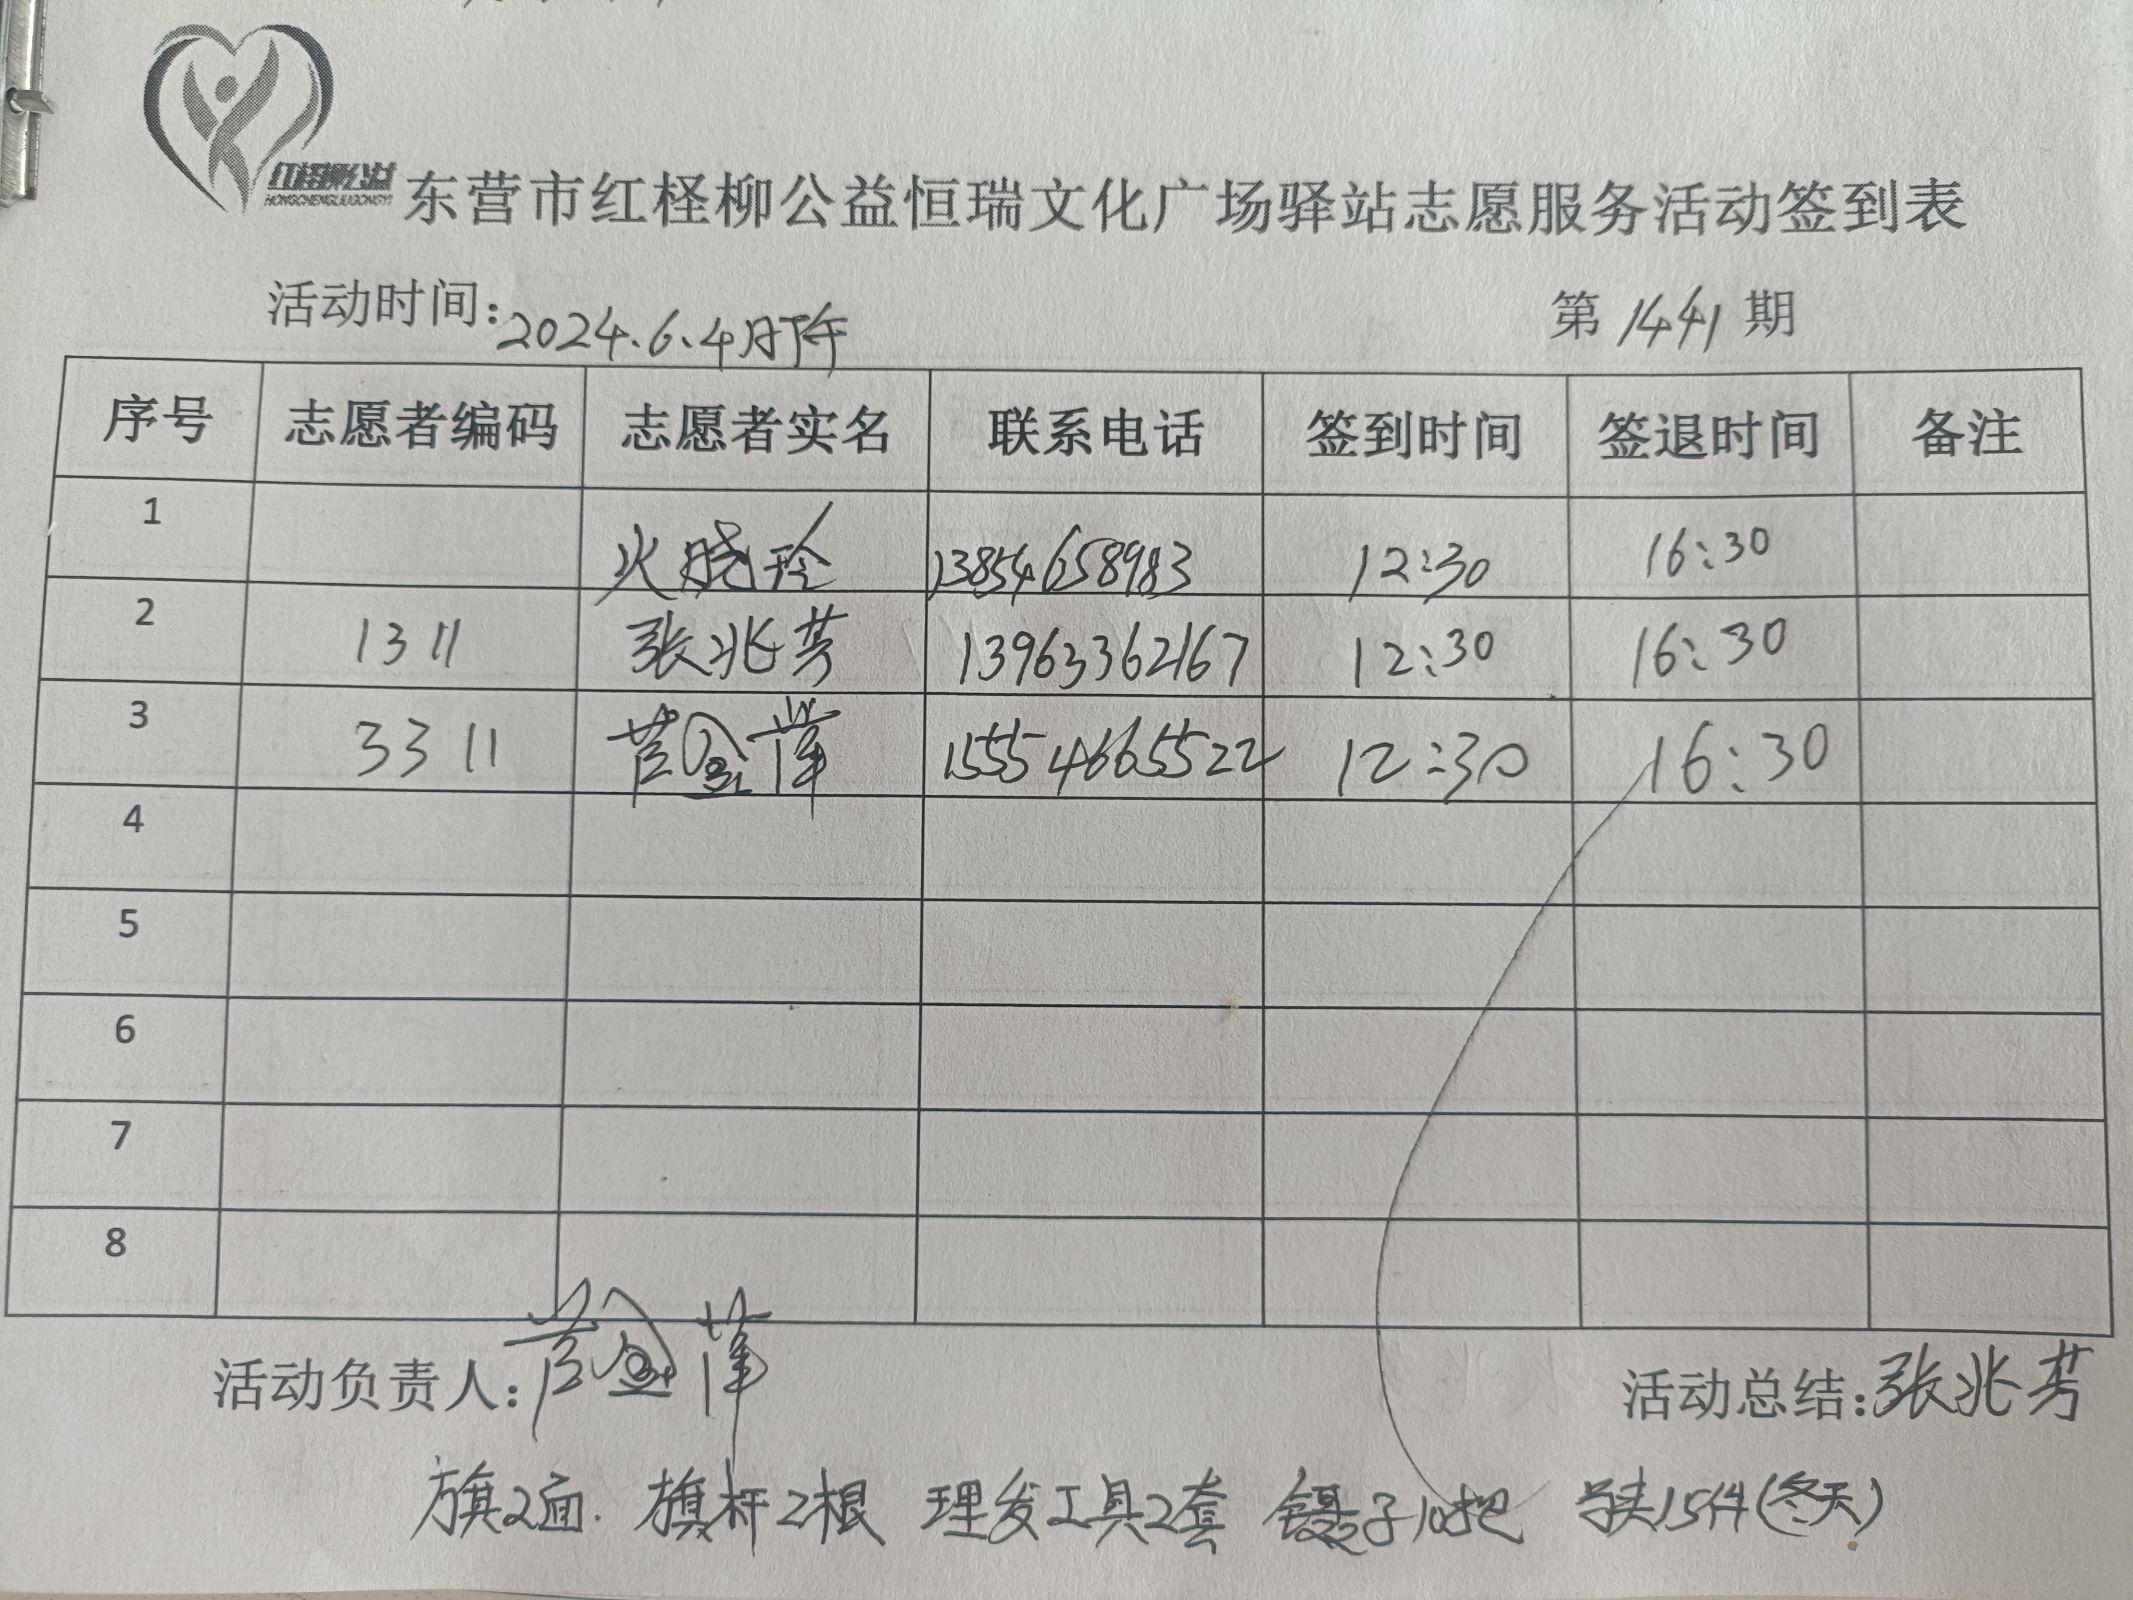 红柽柳公益
HONGCHENGLIUGONGYI
东营市红柽柳公益恒瑞文化广场驿站志愿服务活动签到表
活动时间:2024.6.4日下午 第1441期
序号 志愿者编码 志愿者实名 联系电话 签到时间 签退时间 备注
1 火晓玲 13854658983 12:30 16:30
2 1311 张兆芳 13963362167 12:30 16:30
3 3311 苫金萍 15554665522 12:30 16:30
4
5
6
7
8
活动负责人: 活动总结:张兆芳
旗2面. 旗杆2根 理发工具2套 镊子10把 15件(冬天)